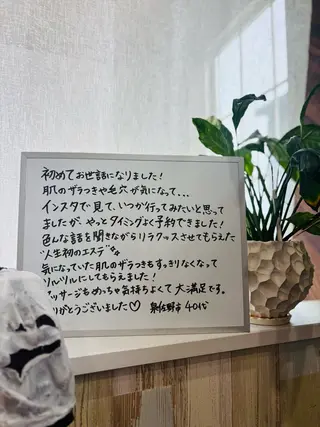 初めてお世話になりました!
肌のザラつきや毛穴が気になって...
インスタで見て、いつか行ってみたいと思って
ましたが、やっとタイミングよく予約できました!
色んな話を聞きながらリラックスさせてもらえた
"人生初のエステ"
気になっていた肌のザラつきもすっきりなくなって
ツルツルにしてもらえました!
マッサージもめっちゃ気持ちよくて大満足です。
りがとうございました♡ 泉佐野市 40代